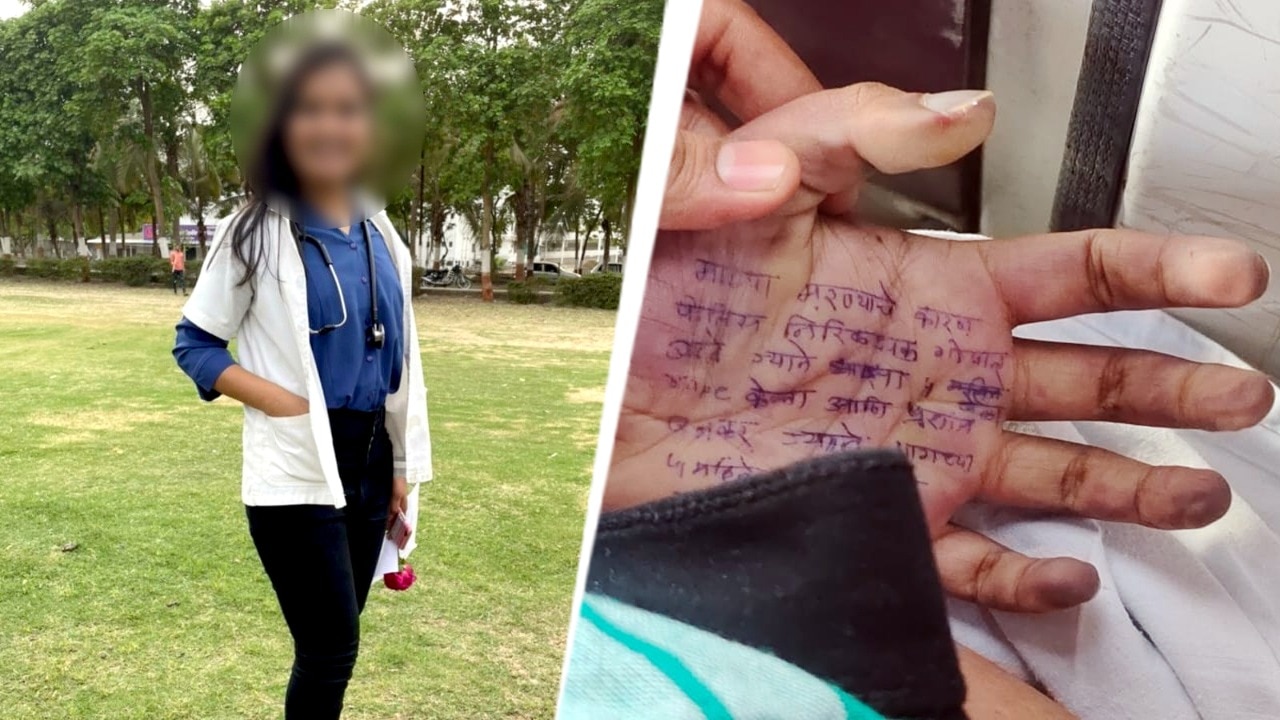 माझ्या मरण्याचे कारण
पोलिस निरिक्षक गोपाल
बदने ज्याने माझा
rape केला आणि प्रशांत
बनकर ज्याने मागच्या
५ महिने